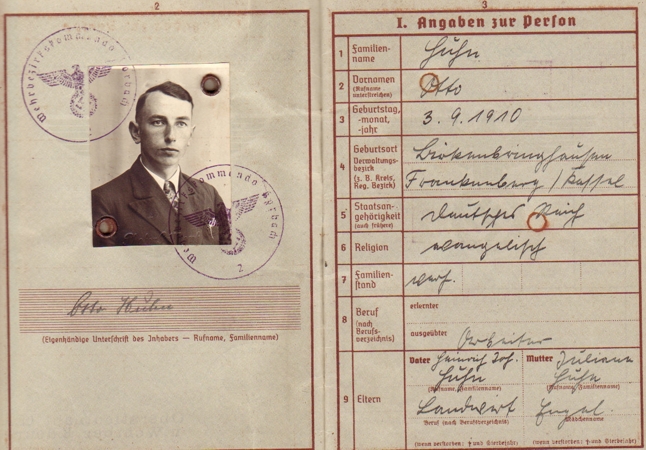 2
Wehrbezirkskommando Korbach
Wehrbezirkskommando Korbach
2
Otto Huhn
(Eigenhändige Unterschrift des Inhabers — Rufname, Familienname)
3
I. Angaben zur Person
1 Familien-
name
Huhn
2 Vornamen
(Rufname
unterstreichen)
Otto
3 Geburtstag,
-monat,
-jahr
3. 9. 1910
4 Geburtsort
Verwaltungs-
bezirk
(z. B. Kreis,
Reg. Bezirk)
Birkenbringhausen
Frankenberg / Kassel
5 Staatsan-
gehörigkeit
(auch frühere)
Deutsches Reich
6 Religion
evangelisch
7 Familien-
stand
verh.
8 Beruf
(nach
Berufs-
verzeichnis)
erlernter
ausgeübter
Arbeiter
9 Eltern
Vater Heinrich Joh.
Huhn
(Rufname, Familienname)
Landwirt
Beruf (nach Berufsverzeichnis)
(wenn verstorben: † und Sterbejahr)
Mutter Juliane
Huhn
(Rufname, Familienname)
Engel.
Mädchenname
(wenn verstorben: † und Sterbejahr)